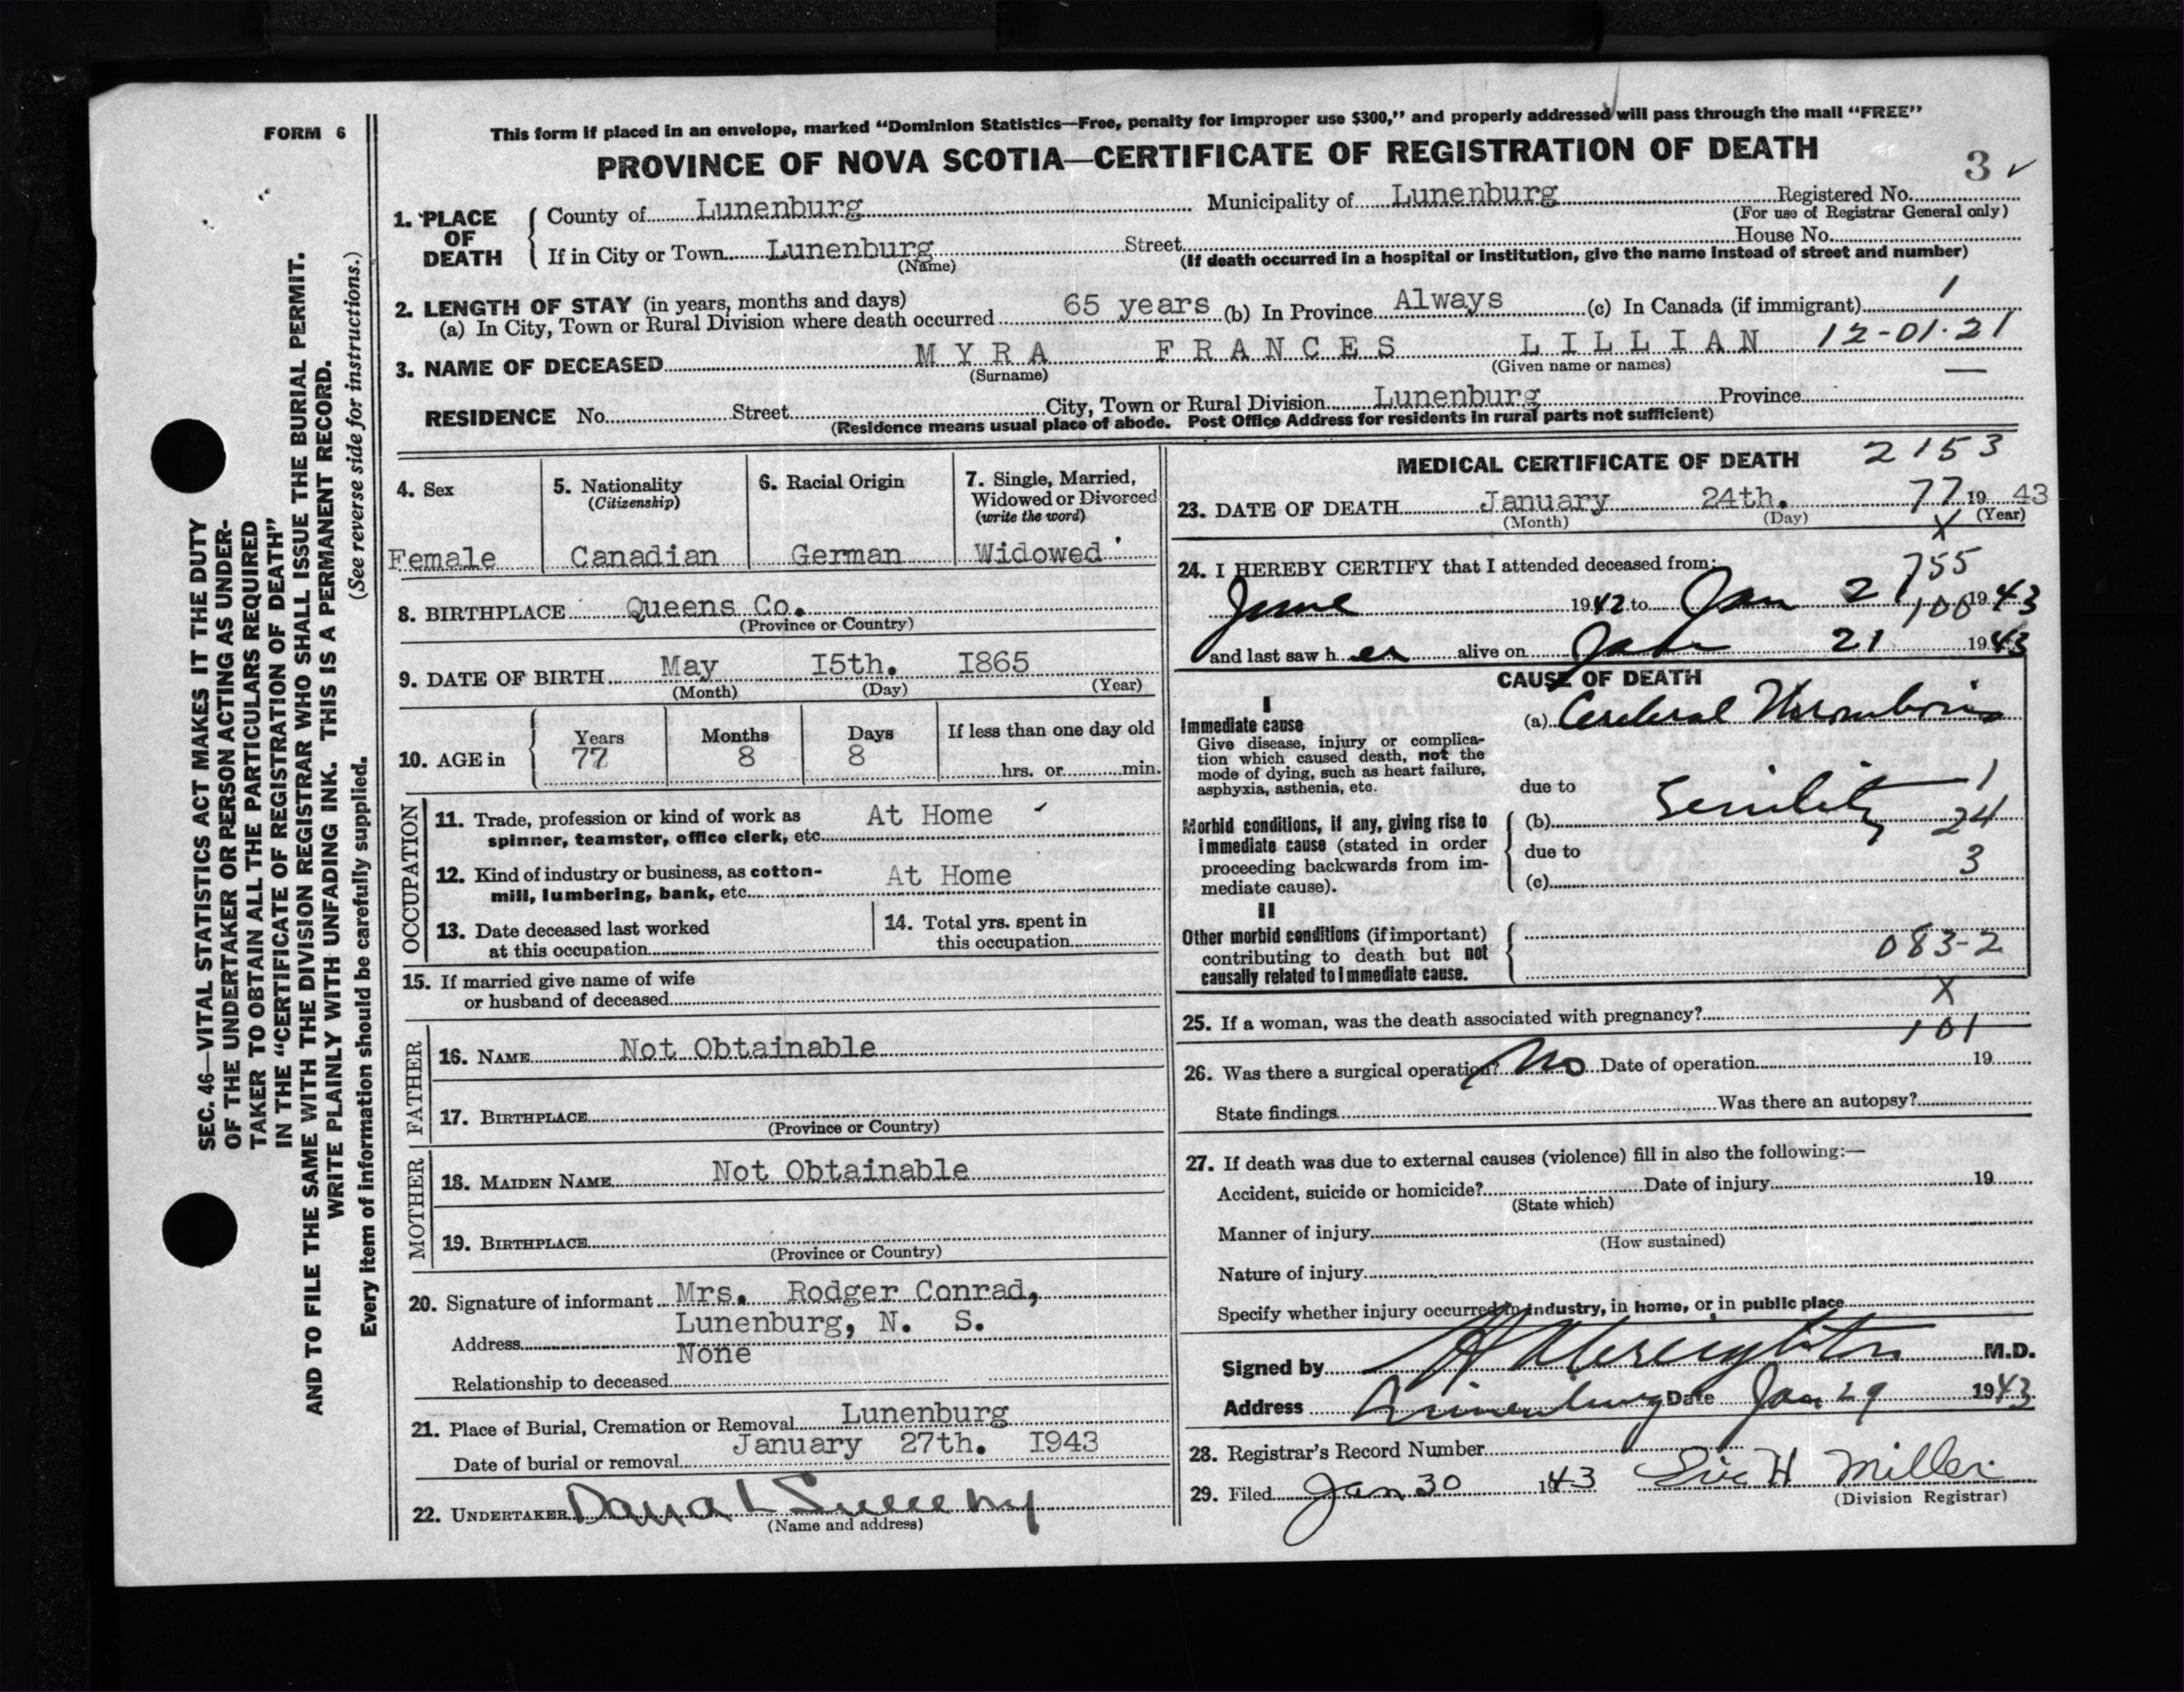 FORM 6
This form if placed in an envelope, marked “Dominion Statistics—Free, penalty for improper use $300,” and properly addressed will pass through the mail “FREE”
PROVINCE OF NOVA SCOTIA—CERTIFICATE OF REGISTRATION OF DEATH
3 ✓
1. PLACE OF DEATH
County of Lunenburg Municipality of Lunenburg Registered No.
(For use of Registrar General only)
If in City or Town Lunenburg Street House No.
(Name) (If death occurred in a hospital or institution, give the name instead of street and number)
2. LENGTH OF STAY (in years, months and days)
(a) In City, Town or Rural Division where death occurred 65 years (b) In Province Always (c) In Canada (if immigrant) 1
3. NAME OF DECEASED MYRA FRANCES LILLIAN 12-01-21
(Surname) (Given name or names)
RESIDENCE No. Street City, Town or Rural Division Lunenburg Province —
(Residence means usual place of abode. Post Office Address for residents in rural parts not sufficient)
4. Sex
Female
5. Nationality
(Citizenship)
Canadian
6. Racial Origin
German
7. Single, Married,
Widowed or Divorced
(write the word)
Widowed
8. BIRTHPLACE Queens Co.
(Province or Country)
9. DATE OF BIRTH May I5th. I865
(Month) (Day) (Year)
10. AGE in
Years Months Days If less than one day old
77 8 8
hrs. or min.
OCCUPATION
11. Trade, profession or kind of work as At Home
spinner, teamster, office clerk, etc.
12. Kind of industry or business, as cotton- At Home
mill, lumbering, bank, etc.
13. Date deceased last worked
at this occupation
14. Total yrs. spent in
this occupation
15. If married give name of wife
or husband of deceased
FATHER
16. NAME Not Obtainable
17. BIRTHPLACE
(Province or Country)
MOTHER
18. MAIDEN NAME Not Obtainable
19. BIRTHPLACE
(Province or Country)
20. Signature of informant Mrs. Rodger Conrad,
Address Lunenburg, N. S.
None
Relationship to deceased
21. Place of Burial, Cremation or Removal Lunenburg
Date of burial or removal January 27th. I943
22. UNDERTAKER Sweeny
(Name and address)
MEDICAL CERTIFICATE OF DEATH 2153
23. DATE OF DEATH January 24th. 77 19 43
(Month) (Day) (Year)
X
24. I HEREBY CERTIFY that I attended deceased from: 755
June 1942 to Jan 21 1943
100
and last saw her alive on Jan 21 1943
CAUSE OF DEATH
I
Immediate cause
Give disease, injury or complica-
tion which caused death, not the
mode of dying, such as heart failure,
asphyxia, asthenia, etc.
(a) Cerebral Thrombosis
due to 1
Morbid conditions, if any, giving rise to
immediate cause (stated in order
proceeding backwards from im-
mediate cause).
(b) Senility 24
due to 3
(c)
II
Other morbid conditions (if important)
contributing to death but not
causally related to immediate cause.
083-2
X
25. If a woman, was the death associated with pregnancy?
101
26. Was there a surgical operation? No Date of operation 19
State findings Was there an autopsy?
27. If death was due to external causes (violence) fill in also the following:—
Accident, suicide or homicide? Date of injury 19
(State which)
Manner of injury
(How sustained)
Nature of injury
Specify whether injury occurred in industry, in home, or in public place
Signed by Creighton M.D.
Address Lunenburg Date Jan 29 1943
28. Registrar's Record Number
29. Filed Jan 30 1943 H Miller
(Division Registrar)
SEC. 46—VITAL STATISTICS ACT MAKES IT THE DUTY
OF THE UNDERTAKER OR PERSON ACTING AS UNDER-
TAKER TO OBTAIN ALL THE PARTICULARS REQUIRED
IN THE “CERTIFICATE OF REGISTRATION OF DEATH”
AND TO FILE THE SAME WITH THE DIVISION REGISTRAR WHO SHALL ISSUE THE BURIAL PERMIT.
WRITE PLAINLY WITH UNFADING INK. THIS IS A PERMANENT RECORD.
Every item of information should be carefully supplied. (See reverse side for instructions.)